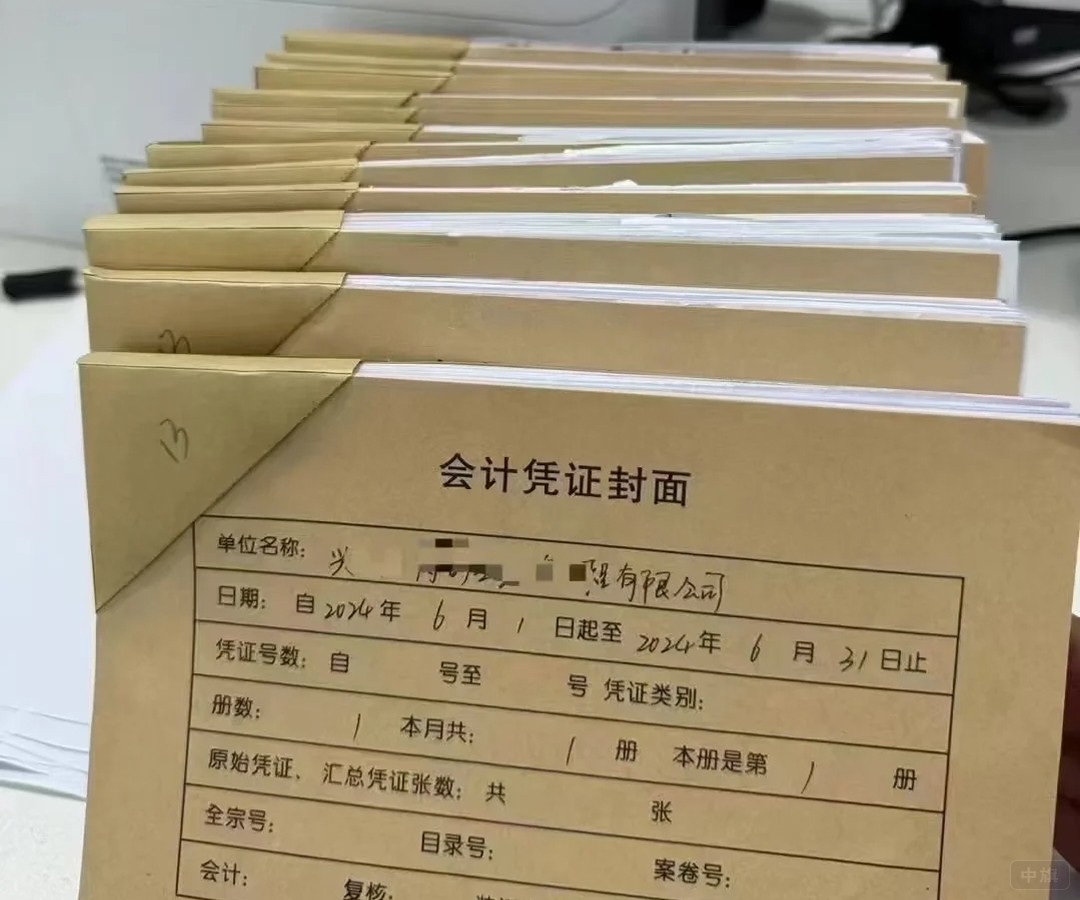 会计凭证封面
单位名称: 有限公司
日期: 自2024年 6 月 1 日起至 2024年 6 月 31日止
凭证号数: 自 号至 号 凭证类别:
册数: 1 本月共: 1 册 本册是第 1 册
原始凭证、汇总凭证张数: 共 张
全宗号: 目录号: 案卷号:
会计: 复核:
中旗